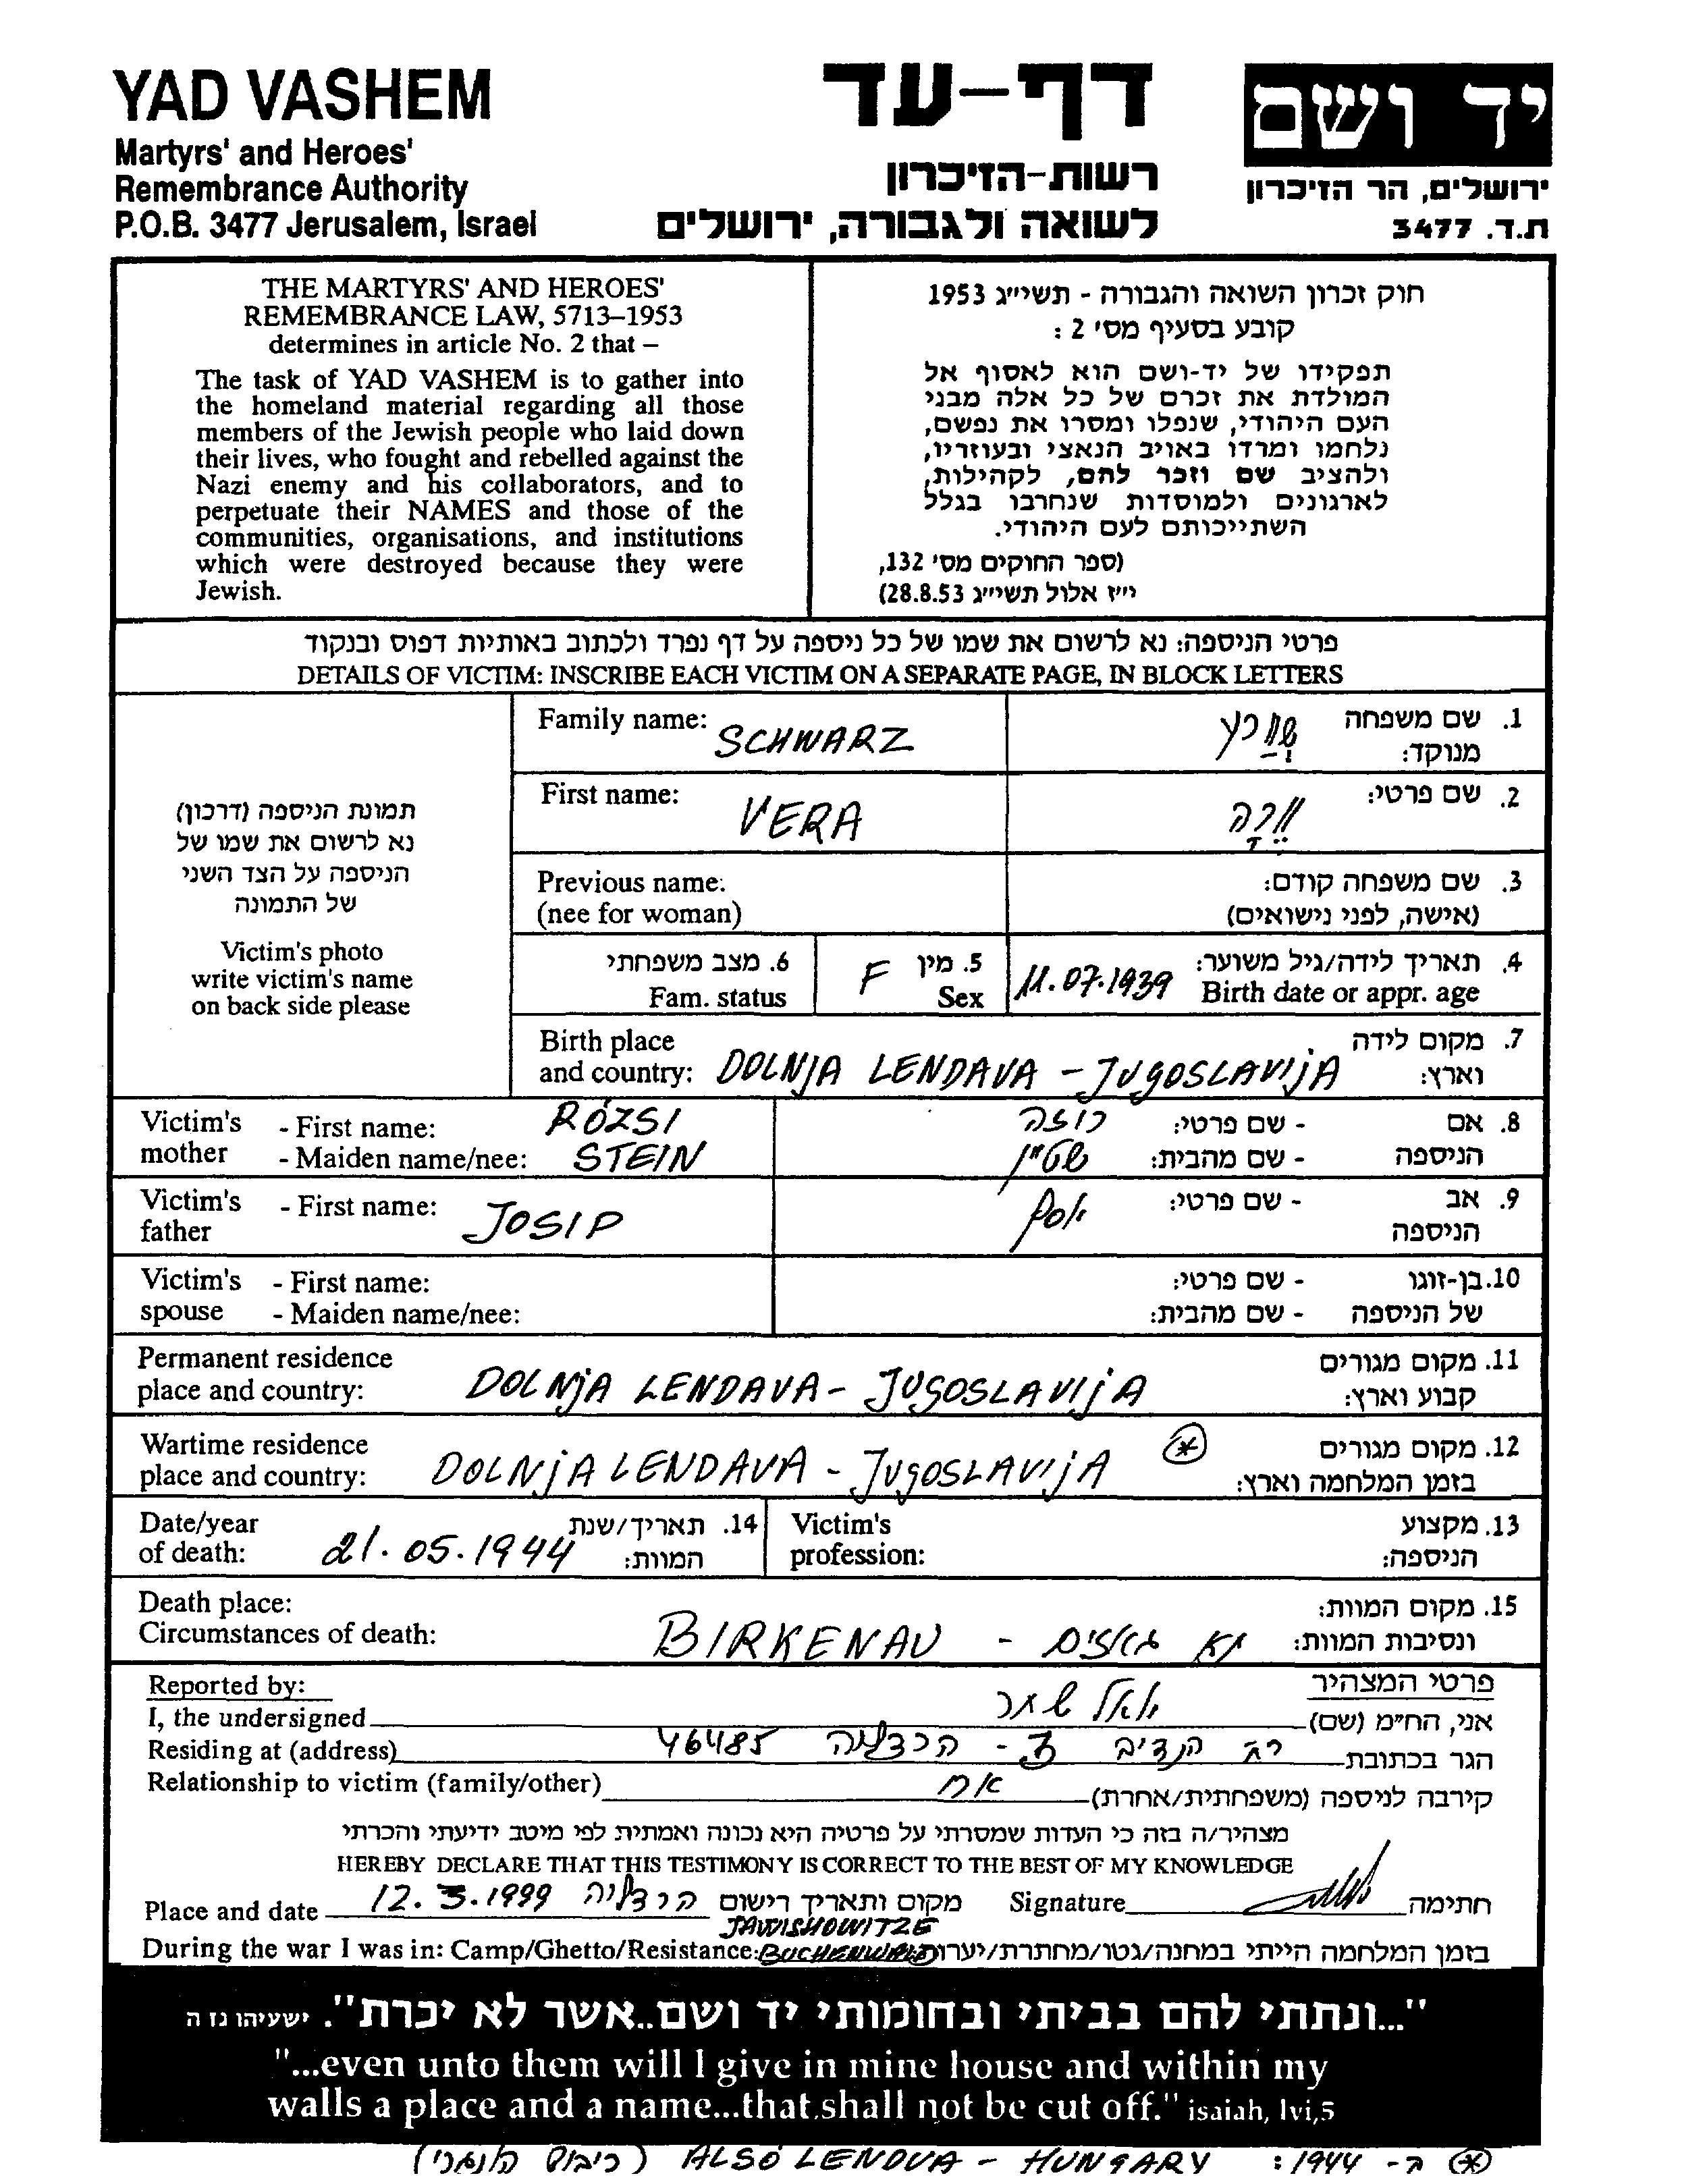 YAD VASHEM
Martyrs' and Heroes'
Remembrance Authority
P.O.B. 3477 Jerusalem, Israel
דף-עד
רשות-הזיכרון
לשואה ולגבורה, ירושלים
יד ושם
ירושלים, הר הזיכרון
ת.ד. 3477
THE MARTYRS' AND HEROES'
REMEMBRANCE LAW, 5713–1953
determines in article No. 2 that –
The task of YAD VASHEM is to gather into
the homeland material regarding all those
members of the Jewish people who laid down
their lives, who fought and rebelled against the
Nazi enemy and his collaborators, and to
perpetuate their NAMES and those of the
communities, organisations, and institutions
which were destroyed because they were
Jewish.
חוק זכרון השואה והגבורה - תשי״ג 1953
קובע בסעיף מס׳ 2 :
תפקידו של יד-ושם הוא לאסוף אל
המולדת את זכרם של כל אלה מבני
העם היהודי, שנפלו ומסרו את נפשם,
נלחמו ומרדו באויב הנאצי ובעוזריו,
ולהציב שם וזכר להם, לקהילות,
לארגונים ולמוסדות שנחרבו בגלל
השתייכותם לעם היהודי.
(ספר החוקים מס׳ 132,
י״ז אלול תשי״ג 28.8.53)
פרטי הניספה: נא לרשום את שמו של כל ניספה על דף נפרד ולכתוב באותיות דפוס ובנקוד
DETAILS OF VICTIM: INSCRIBE EACH VICTIM ON A SEPARATE PAGE, IN BLOCK LETTERS
תמונת הניספה (דרכון)
נא לרשום את שמו של
הניספה על הצד השני
של התמונה
Victim's photo
write victim's name
on back side please
Family name: SCHWARZ שוַרץ 1. שם משפחה
מנוקד:
First name: VERA וֵרָה 2. שם פרטי:
Previous name: 3. שם משפחה קודם:
(nee for woman) (אישה, לפני נישואים)
6. מצב משפחתי F 5. מין 11.07.1939 4. תאריך לידה/גיל משוער:
Fam. status Sex Birth date or appr. age
Birth place 7. מקום לידה
and country: DOLNJA LENDAVA - JUGOSLAVIJA וארץ:
Victim's - First name: RÓZSI רוזה - שם פרטי: 8. אם
mother - Maiden name/nee: STEIN שטיין - שם מהבית: הניספה
Victim's - First name: JOSIP יוסף - שם פרטי: 9. אב
father הניספה
Victim's - First name: - שם פרטי: 10. בן-זוגו
spouse - Maiden name/nee: - שם מהבית: של הניספה
Permanent residence 11. מקום מגורים
place and country: DOLNJA LENDAVA - JUGOSLAVIJA קבוע וארץ:
Wartime residence 12. מקום מגורים
place and country: DOLNJA LENDAVA - JUGOSLAVIJA * בזמן המלחמה וארץ:
Date/year 14. תאריך/שנת Victim's 13. מקצוע
of death: 21.05.1944 המוות: profession: הניספה:
Death place: 15. מקום המוות:
Circumstances of death: BIRKENAU - תא גאזים ונסיבות המוות:
Reported by: פרטי המצהיר
I, the undersigned שחר אני, הח״מ (שם)
Residing at (address) הנדיב - הרצליה 46485 הגר בכתובת
Relationship to victim (family/other) אח קירבה לניספה (משפחתית/אחרת)
מצהיר/ה בזה כי העדות שמסרתי על פרטיה היא נכונה ואמתית לפי מיטב ידיעתי והכרתי
HEREBY DECLARE THAT THIS TESTIMONY IS CORRECT TO THE BEST OF MY KNOWLEDGE
Place and date 12.3.1999 הרצליה מקום ותאריך רישום Signature חתימה
JAWISHOWITZE
During the war I was in: Camp/Ghetto/Resistance: BUCHENWALD בזמן המלחמה הייתי במחנה/גטו/מחתרת/יערות
"...ונתתי להם בביתי ובחומותי יד ושם..אשר לא יכרת". ישעיהו נז ה
"...even unto them will I give in mine house and within my
walls a place and a name...that shall not be cut off." isaiah, lvi,5
* ב- 1944 : ALSÓ LENDVA - HUNGARY (כיבוש הונגרי)